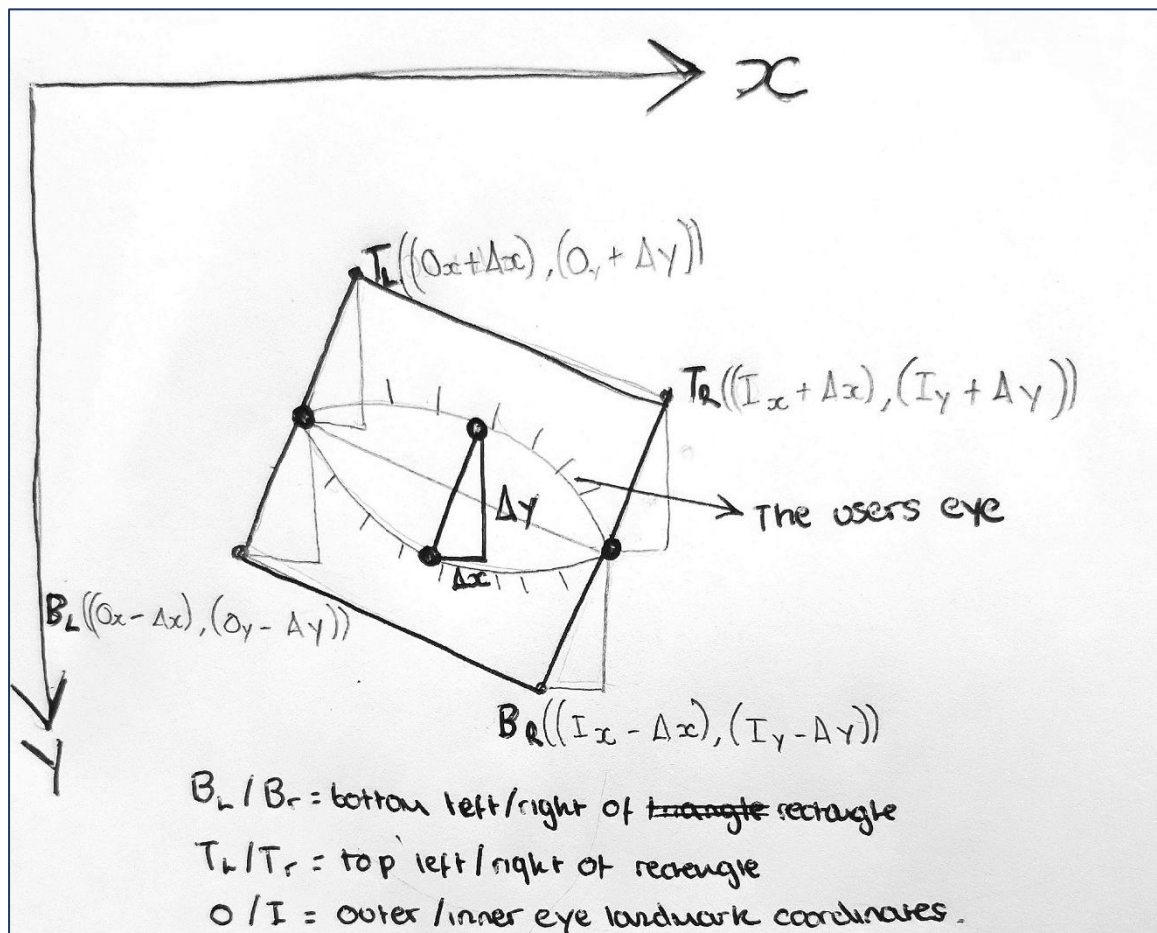 x
T_L((Ox+Δx),(Oy+Δy))
T_R((Ix+Δx),(Iy+Δy))
Δy
The users eye
Δx
B_L((Ox-Δx),(Oy-Δy))
B_R((Ix-Δx),(Iy-Δy))
Y
B_L/B_r = bottom left/right of triangle rectangle
T_L/T_r = top left/right of rectengle
O/I = outer/inner eye landmark coordinates.